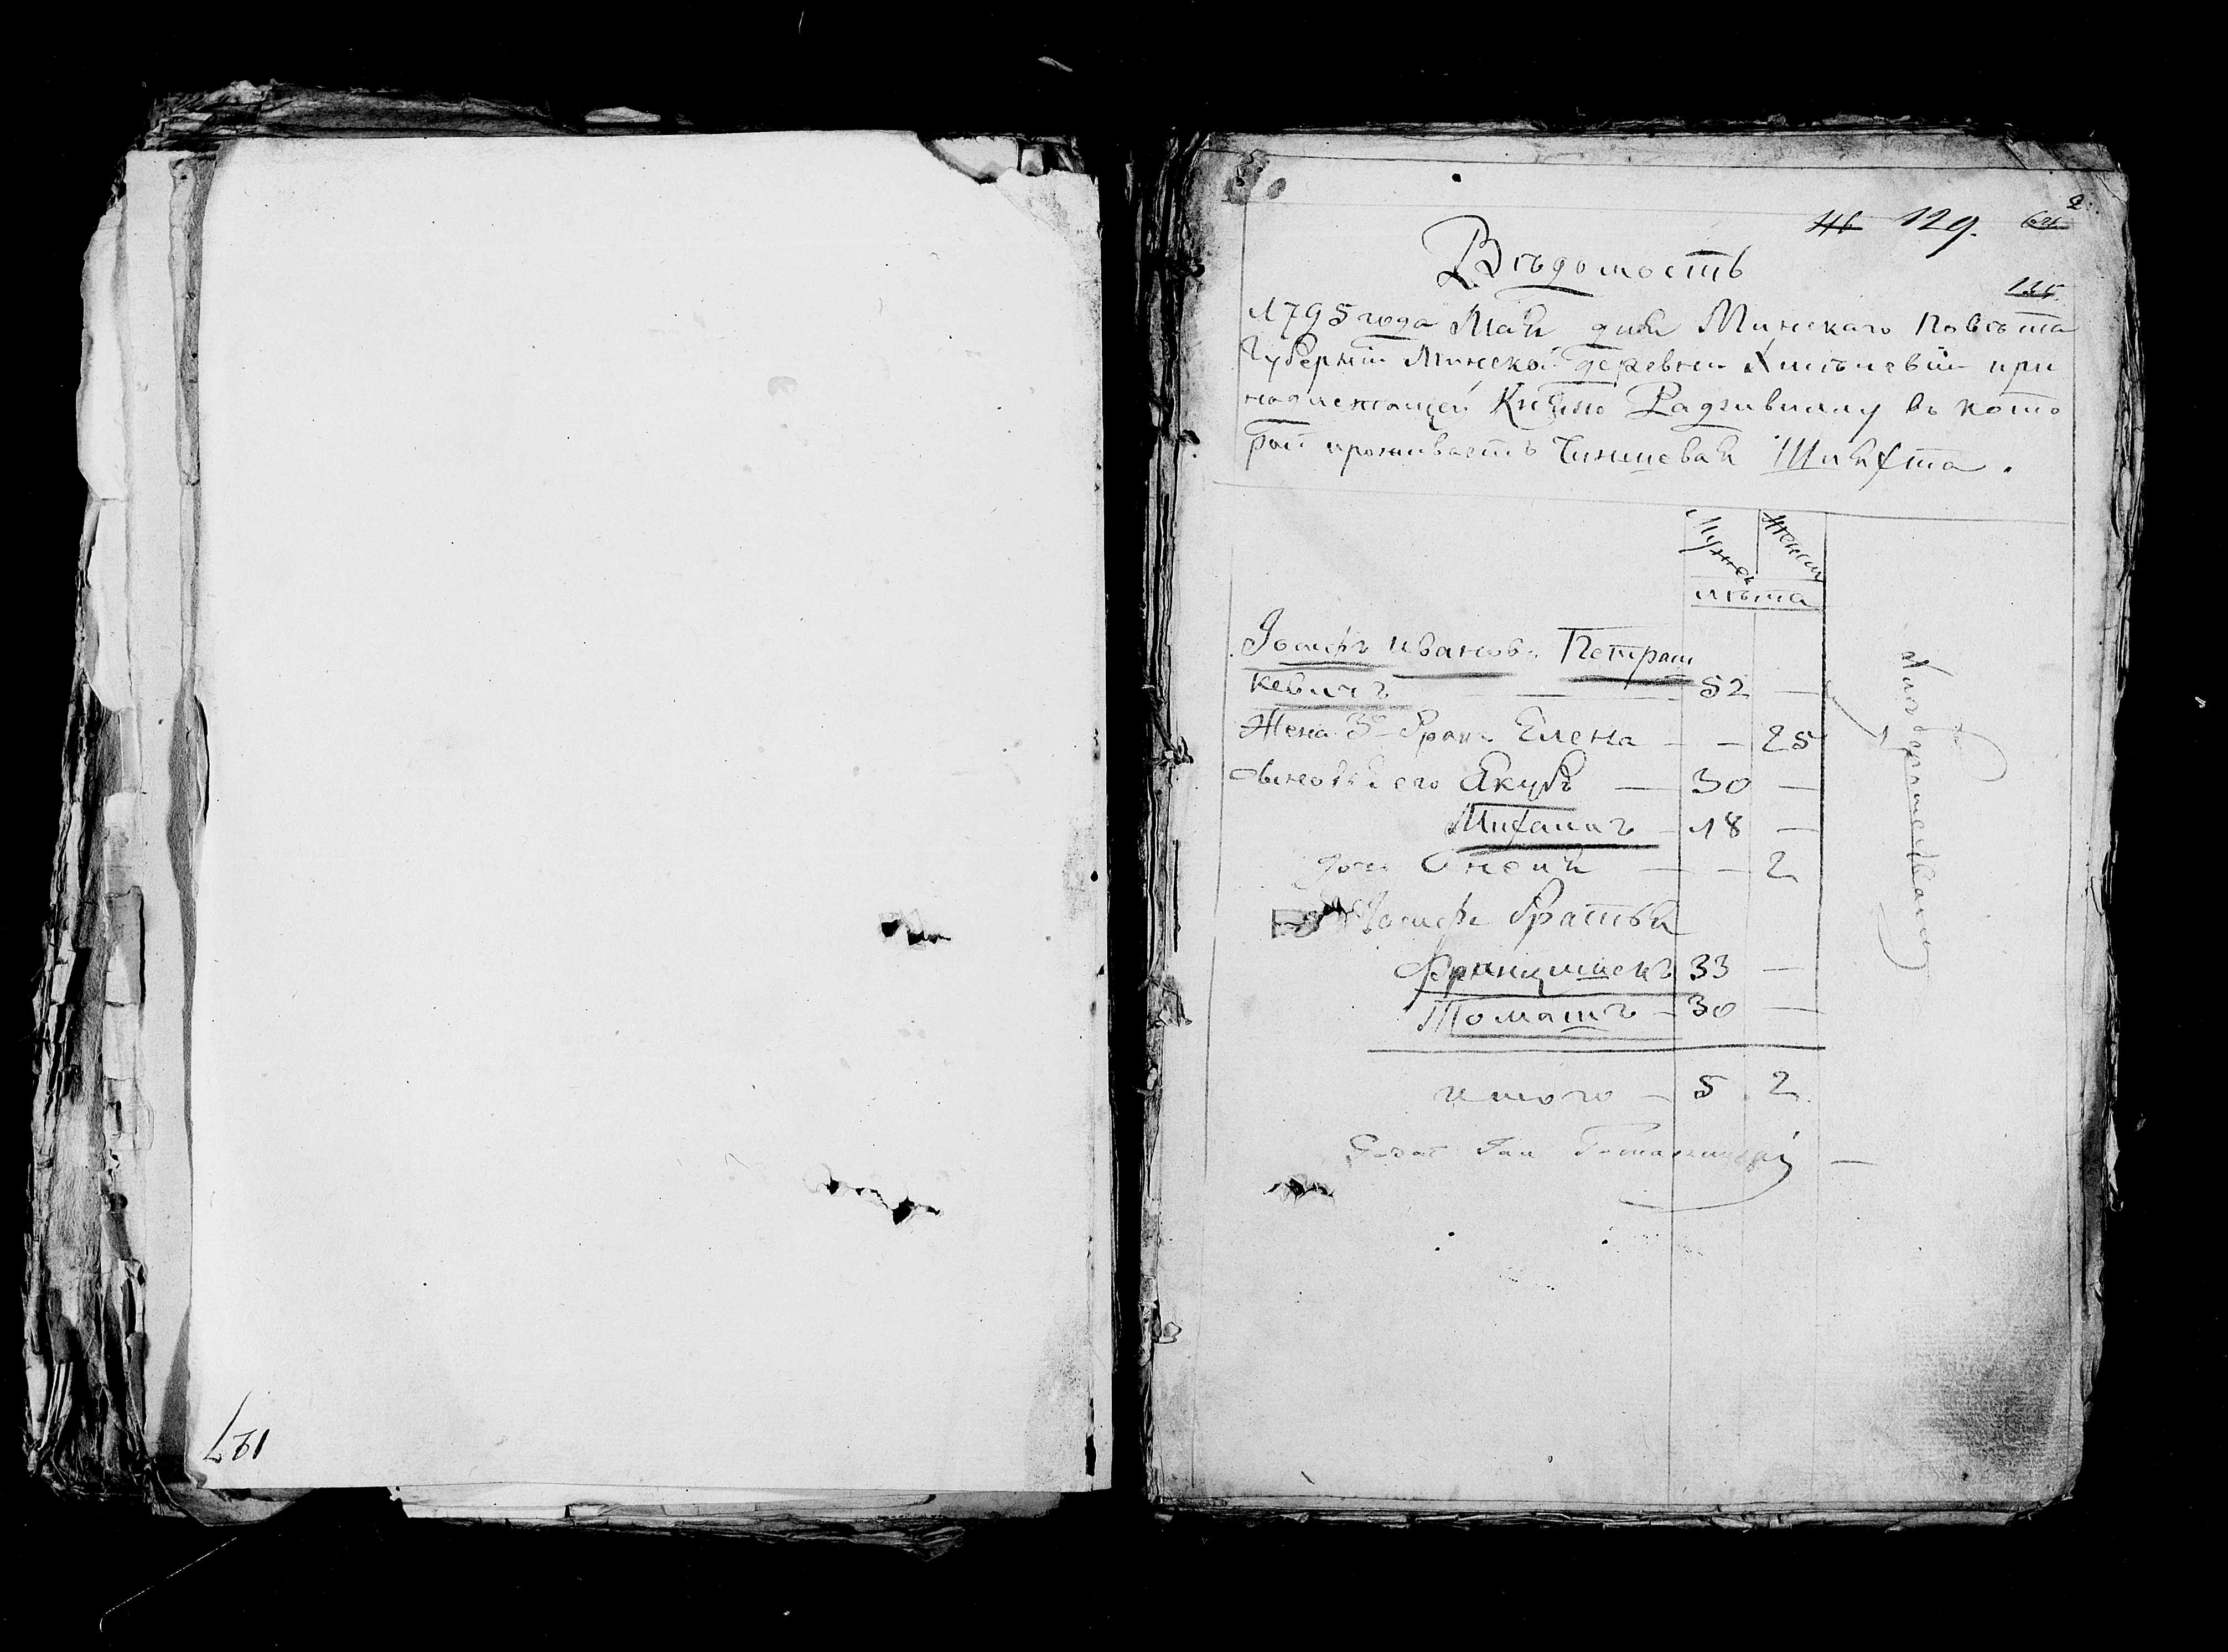 127
129.
Вѣдомость
1795 года Маія дня Минскаго Повѣта
Губерніи Минской деревни при
надлежащей Князю Радзивиллу въ кото
рой проживаетъ Чиншевая Шляхта.
Мужеск Женск
лѣта
Іосифъ Ивановъ Петраш
кевичъ — 52 —
Жена 3го брак. Елена — — 25
Сыновья его Якубъ — 30 —
Михаилъ — 18 —
дочь — — 2
Іосифа братья
Францишекъ 33 —
Томашъ — 30 —
итого — 5 2